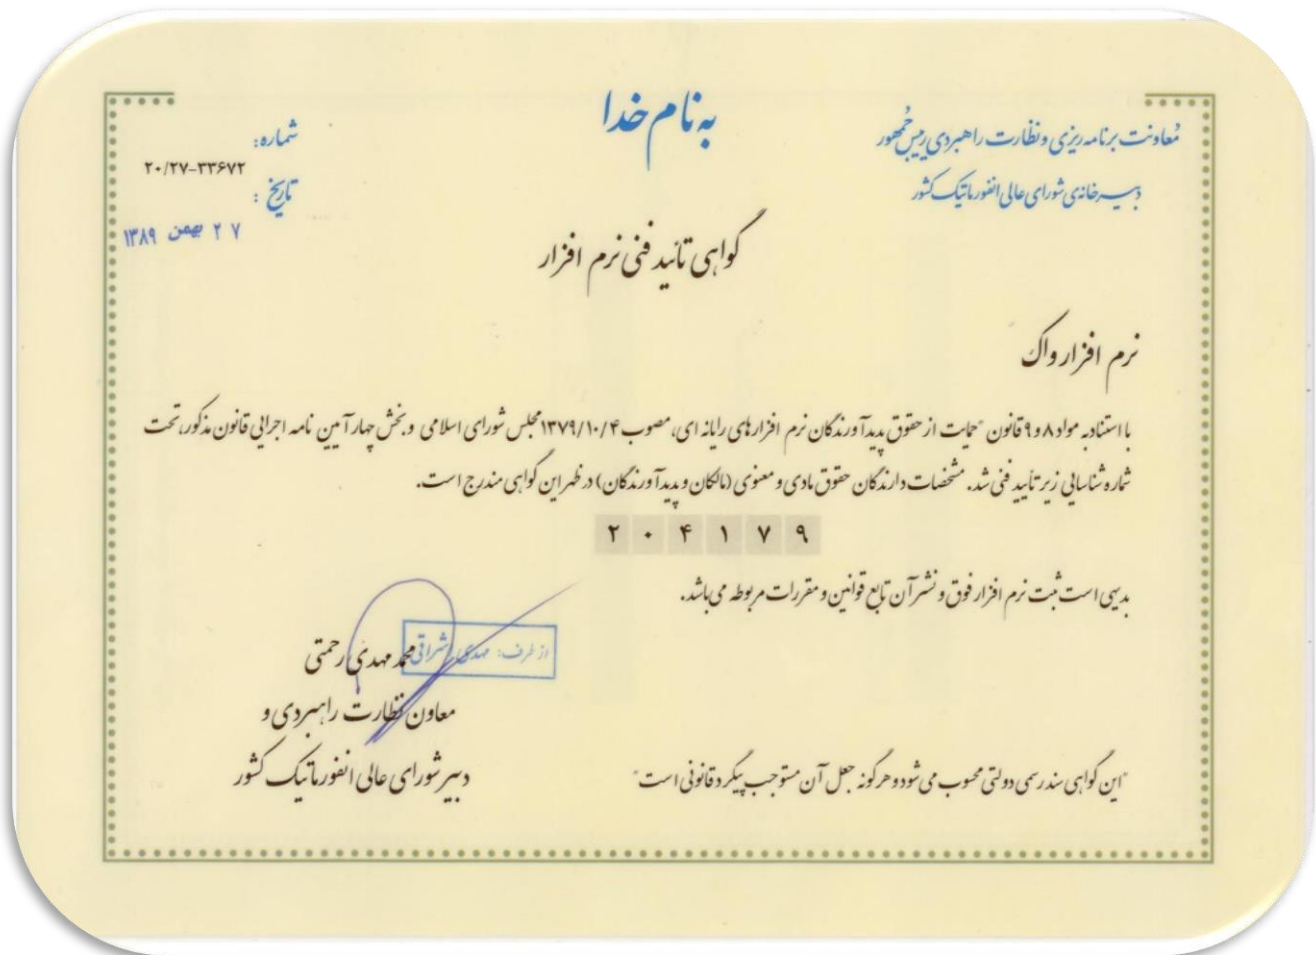 به نام خدا
معاونت برنامه ریزی و نظارت راهبردی رییس جمهور
دبیرخانه‌ی شورای عالی انفورماتیک کشور
شماره:
۲۰/۲۷-۳۳۶۷۲
تاریخ :
۲۷ بهمن ۱۳۸۹
گواهی تائید فنی نرم افزار
نرم افزار واک
با استناد به مواد ۸ و ۹ قانون "حمایت از حقوق پدیدآورندگان نرم افزارهای رایانه ای، مصوب ۱۳۷۹/۱۰/۴ مجلس شورای اسلامی و بخش چهار آیین نامه اجرایی قانون مذکور، تحت
شماره شناسایی زیر تأیید فنی شد. مشخصات دارندگان حقوق مادی و معنوی (مالکان و پدیدآورندگان) در ظهر این گواهی مندرج است.
۲۰۴۱۷۹
بدیهی است ثبت نرم افزار فوق و نشر آن تابع قوانین و مقررات مربوطه می باشد.
از طرف: مهدی اشراقی
محمد مهدی رحمتی
معاون نظارت راهبردی و
دبیر شورای عالی انفورماتیک کشور
"این گواهی سند رسمی دولتی محسوب می شود و هرگونه جعل آن مستوجب پیگرد قانونی است"